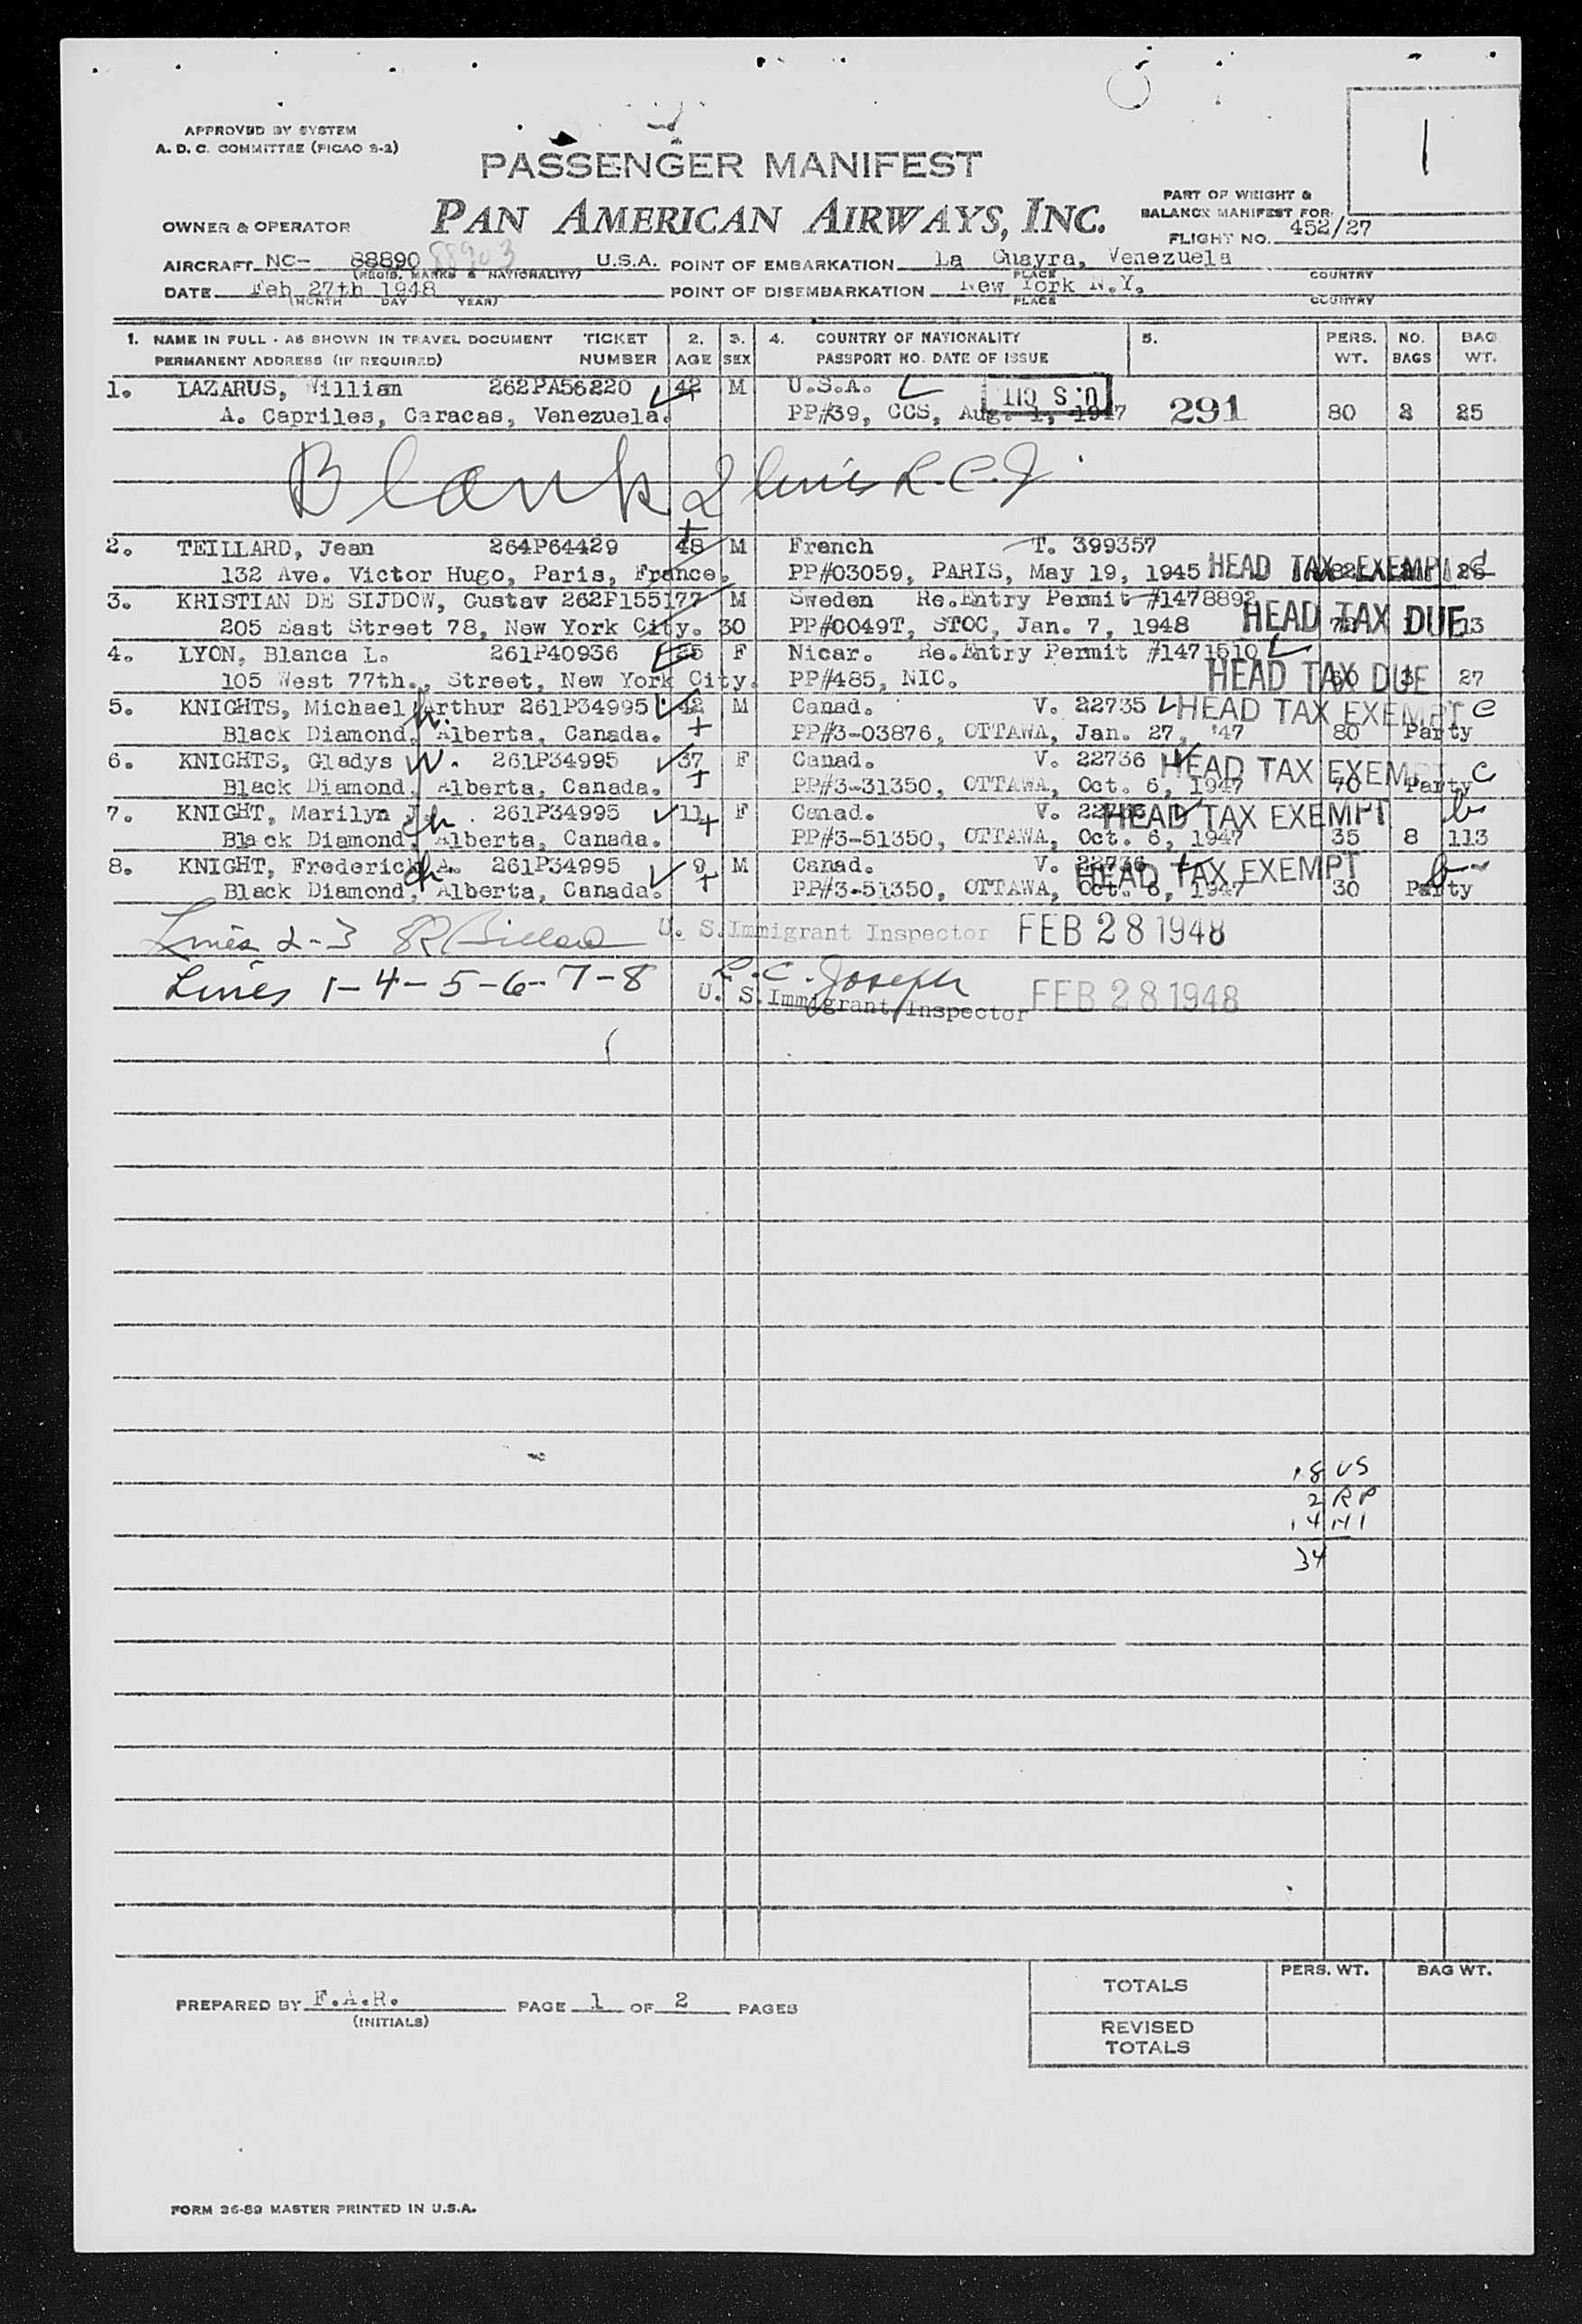 APPROVED BY SYSTEM
A. D. C. COMMITTEE (PICAO S-2)
1
PASSENGER MANIFEST
PAN AMERICAN AIRWAYS, INC.
PART OF WEIGHT &
BALANCE MANIFEST FOR
FLIGHT NO. 452/27
OWNER & OPERATOR
AIRCRAFT NC- 88890 88903 U.S.A. POINT OF EMBARKATION La Guayra, Venezuela
(REGIS. MARKS & NATIONALITY) PLACE COUNTRY
DATE Feb 27th 1948 POINT OF DISEMBARKATION New York N.Y.
(MONTH DAY YEAR) PLACE COUNTRY
1. NAME IN FULL - AS SHOWN IN TRAVEL DOCUMENT TICKET 2. 3. 4. COUNTRY OF NATIONALITY 5. PERS. NO. BAG
PERMANENT ADDRESS (IF REQUIRED) NUMBER AGE SEX PASSPORT NO. DATE OF ISSUE WT. BAGS WT.
1. LAZARUS, Willian 262PA56220 42 M U.S.A. U.S CIT
A. Capriles, Caracas, Venezuela. PP#39, CCS, Aug. 1, 1947 291 80 2 25
Blank 2 lines L.C.J.
2. TEILLARD, Jean 264P64429 48 M French T. 399357
132 Ave. Victor Hugo, Paris, France. PP#03059, PARIS, May 19, 1945 HEAD TAX EXEMPT
3. KRISTIAN DE SIJDOW, Gustav 262P155177 M Sweden Re.Entry Permit #1478892
205 East Street 78, New York City. 30 PP#0049T, STOC, Jan. 7, 1948 HEAD TAX DUE 13
4. LYON, Blanca L. 261P40936 25 F Nicar. Re.Entry Permit #1471510
105 West 77th., Street, New York City. PP#485, NIC. HEAD TAX DUE 27
5. KNIGHTS, Michael Arthur 261P34995 42 M Canad. V. 22735 HEAD TAX EXEMPT C
Black Diamond, Alberta, Canada. PP#3-03876, OTTAWA, Jan. 27, '47 80 Party
6. KNIGHTS, Gladys W. 261P34995 37 F Canad. V. 22736 HEAD TAX EXEMPT C
Black Diamond, Alberta, Canada. PP#3-31350, OTTAWA, Oct. 6, 1947 70 Party
7. KNIGHT, Marilyn J. 261P34995 11 F Canad. V. HEAD TAX EXEMPT
Black Diamond, Alberta, Canada. PP#3-51350, OTTAWA, Oct. 6, 1947 35 8 113
8. KNIGHT, Frederick A. 261P34995 9 M Canad. V. 22736 HEAD TAX EXEMPT
Black Diamond, Alberta, Canada. PP#3-51350, OTTAWA, Oct. 6, 1947 30 Party
Lines 2-3 U. S. Immigrant Inspector FEB 28 1948
Lines 1-4-5-6-7-8 L. C. Joseph
U. S. Immigrant Inspector FEB 28 1948
18 US
2 RP
14 HI
34
PERS. WT. BAG WT.
TOTALS
PREPARED BY F.A.R. PAGE 1 OF 2 PAGES
(INITIALS)
REVISED
TOTALS
FORM 36-89 MASTER PRINTED IN U.S.A.